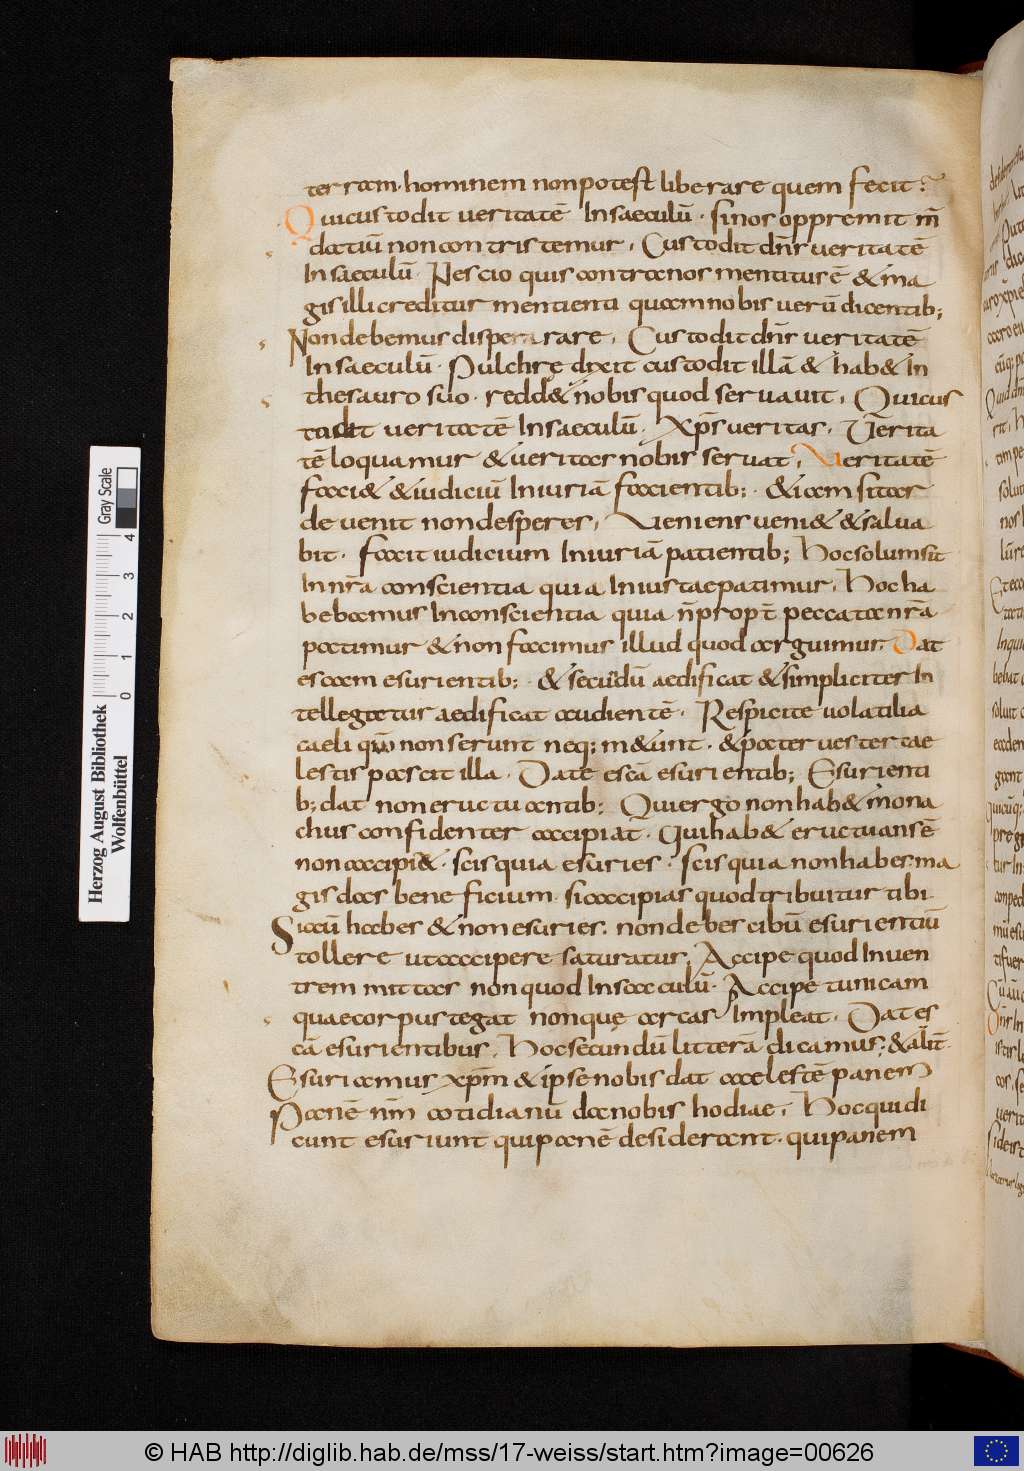 terram. hominem non potest liberare quem fecit.
Qui custodit ueritatē In saeculū. si nos oppremit m̄
daciū non contristemur. Custodit dn̄s ueritatē
In saeculū. Nescio quis contra nos mentitur ē & ma
gis illi creditur mentienti quam nobis uerū dicentib;
Non debemus disperare. Custodit dn̄s ueritatē
In saeculū. Pulchrę dixit custodit illā & hab& In
thesauro suo. redd& nobis quod seruauit. Qui cus
todit ueritatē In saeculū. xp̄s ueritas. Uerita
tē loquamur & ueritas nobis seruat. Ueritatē
faci& & iudiciū Iniuriā facientib; & iam si tar
de uenit non desperes. Ueniens ueni& & salua
bit. facit iudicium Iniuriā patientib; Hoc solum sit
In nr̄a conscientia quia Iniustae patimur. Hoc ha
bebamus In conscientia quia n̄ propt̄ peccata nr̄a
patimur & non facimus illud quod arguimur. Dat
escam esurientib; & secundū aedificat & simpliciter In
tellegatur aedificat audientē. Respicite uolatilia
caeli quo non serunt neq; m&unt. & pater uester cae
lestis pascit illa. Date escā esurientib; Esurienti
b; dat non eructuantib; Qui ergo non hab& mona
chus confidenter accipiat. Qui hab& eructuans ē
non accipi&. scis quia esuries. scis quia non habes. ma
gis das beneficium. si accipias quod tribuitur tibi.
Si aū habes & non esuries. non debes cibū esurientiū
tollere ut accipere saturatur. Accipe quod In uen
trem mittas non quod In sacculū. Accipe tunicam
quae corpus tegat non quę arcas Impleat. Dat es
cā esurientibus. Hoc secundū litterā dicamus; & alit̄.
Esuriamus xp̄m & ipse nobis dat caelestē panem
Panē nr̄m cotidianū da nobis hodiae. Hoc qui di
cunt esuriunt qui panē desiderant. qui panem
Gray Scale
Herzog August Bibliothek
Wolfenbüttel
0 1 2 3 4
© HAB http://diglib.hab.de/mss/17-weiss/start.htm?image=00626